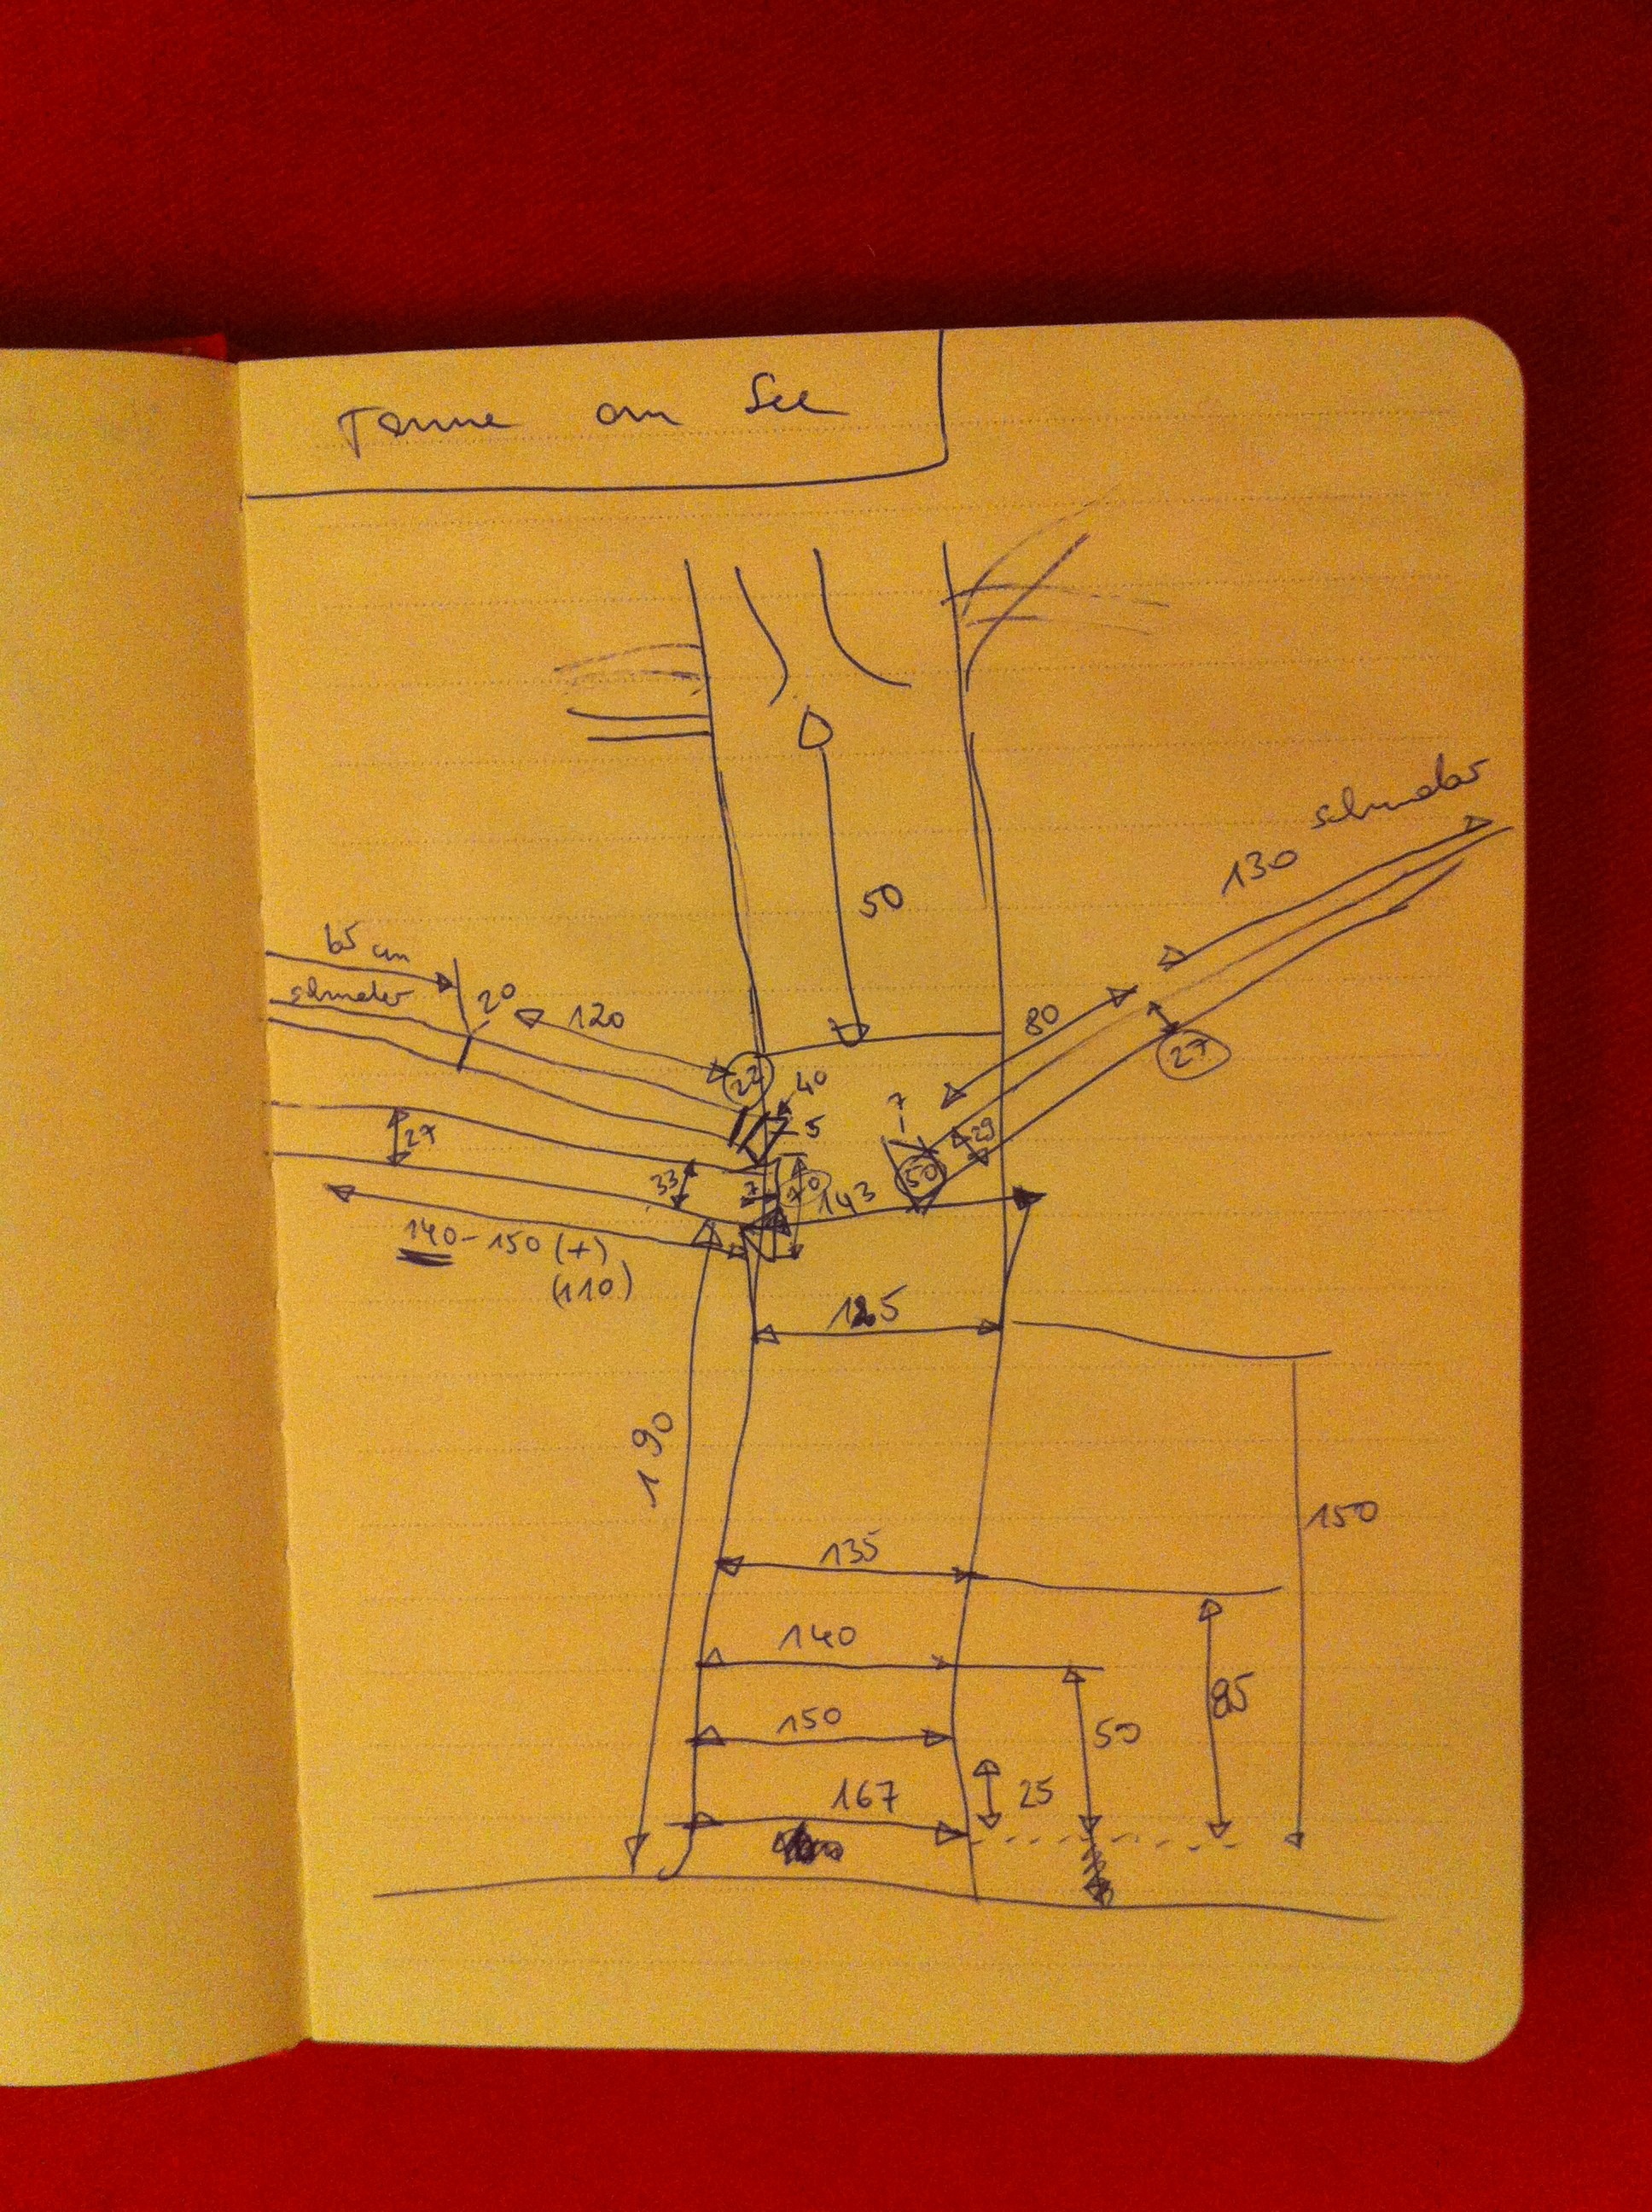 Tanne am See
50
130 schmaler
65 cm
schmaler
20
120
80
27
22
40
5
7
29
27
33
7
70
50
143
140-150 (+)
(110)
125
190
135
150
140
85
150
50
167
25